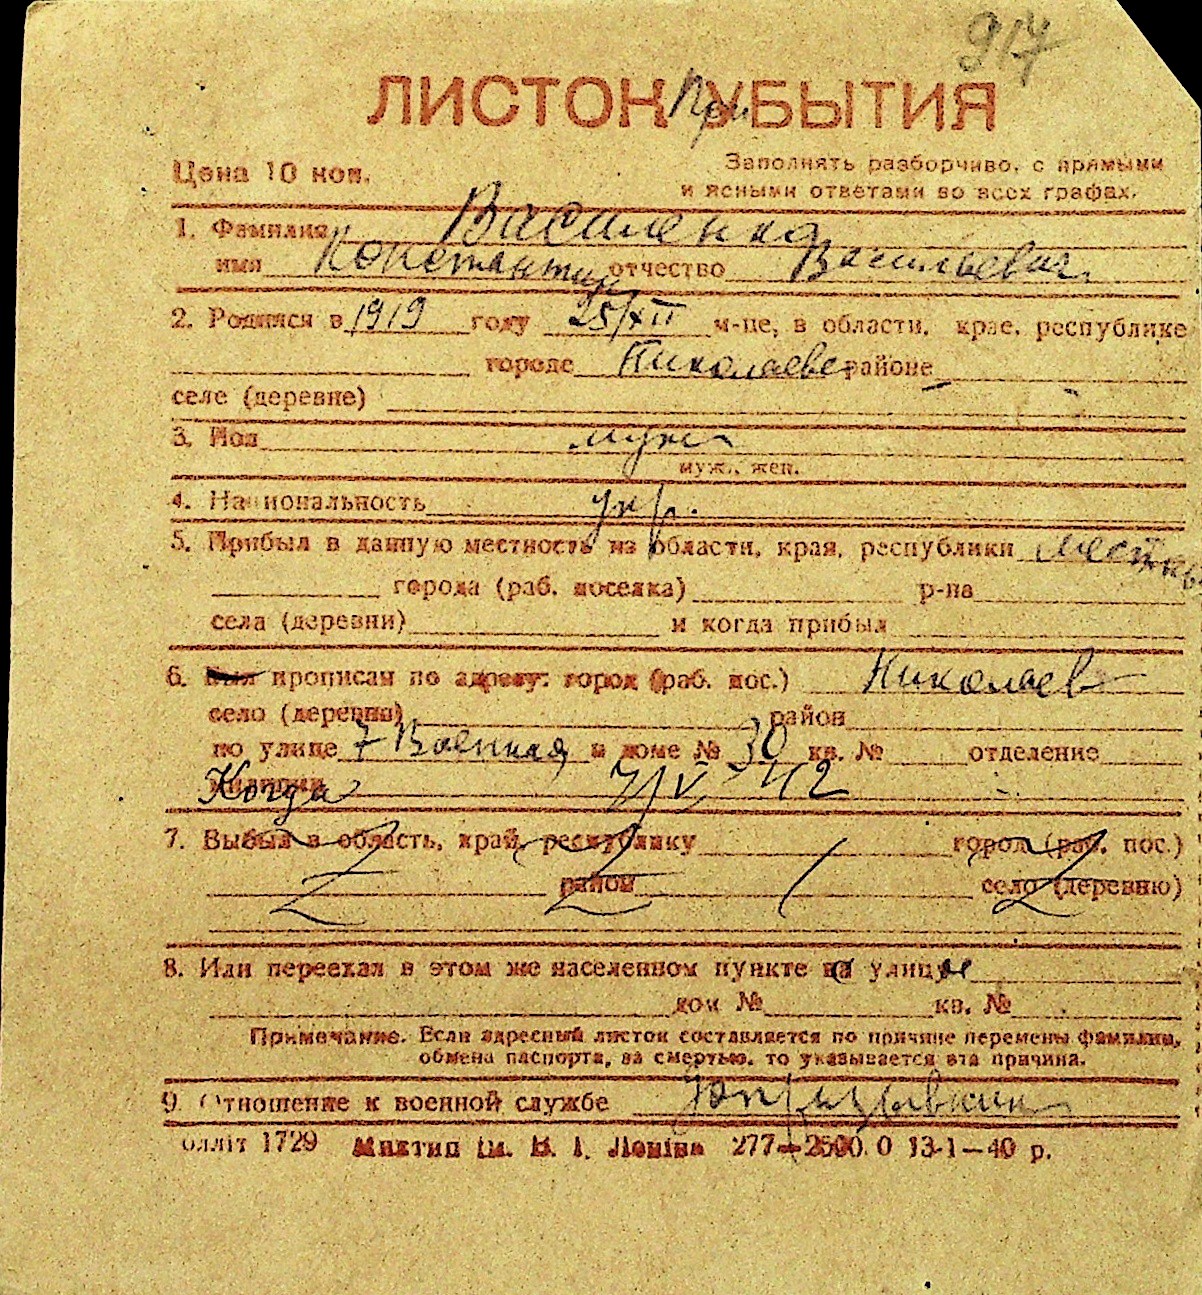 917
ЛИСТОК УБЫТИЯ
При
Цена 10 коп.
Заполнять разборчиво, с прямыми
и ясными ответами во всех графах.
1. Фамилия Василенко
имя Константин отчество Васильевич
2. Родился в 1919 году 25/XII м-це, в области, крае, республике
городе Николаеве районе
селе (деревне)
3. Пол муж
муж., жен.
4. Национальность укр.
5. Прибыл в данную местность из области, края, республики местный
города (раб. поселка) р-на
села (деревни) и когда прибыл
6. Был прописан по адресу: город (раб. пос.) Николаев
село (деревня) район
по улице 7 Военная в доме № 30 кв. № отделение
милиции Когда 7/V-42
7. Выбыл в область, край, республику город (раб. пос.)
район село (деревню)
8. Или переехал в этом же населенном пункте на улицу
дом № кв. №
Примечание. Если адресный листок составляется по причине перемены фамилии,
обмена паспорта, за смертью, то указывается эта причина.
9. Отношение к военной службе
олліт 1729 Миктип ім. В. І. Леніна 277—2500.0 13-1—40 р.